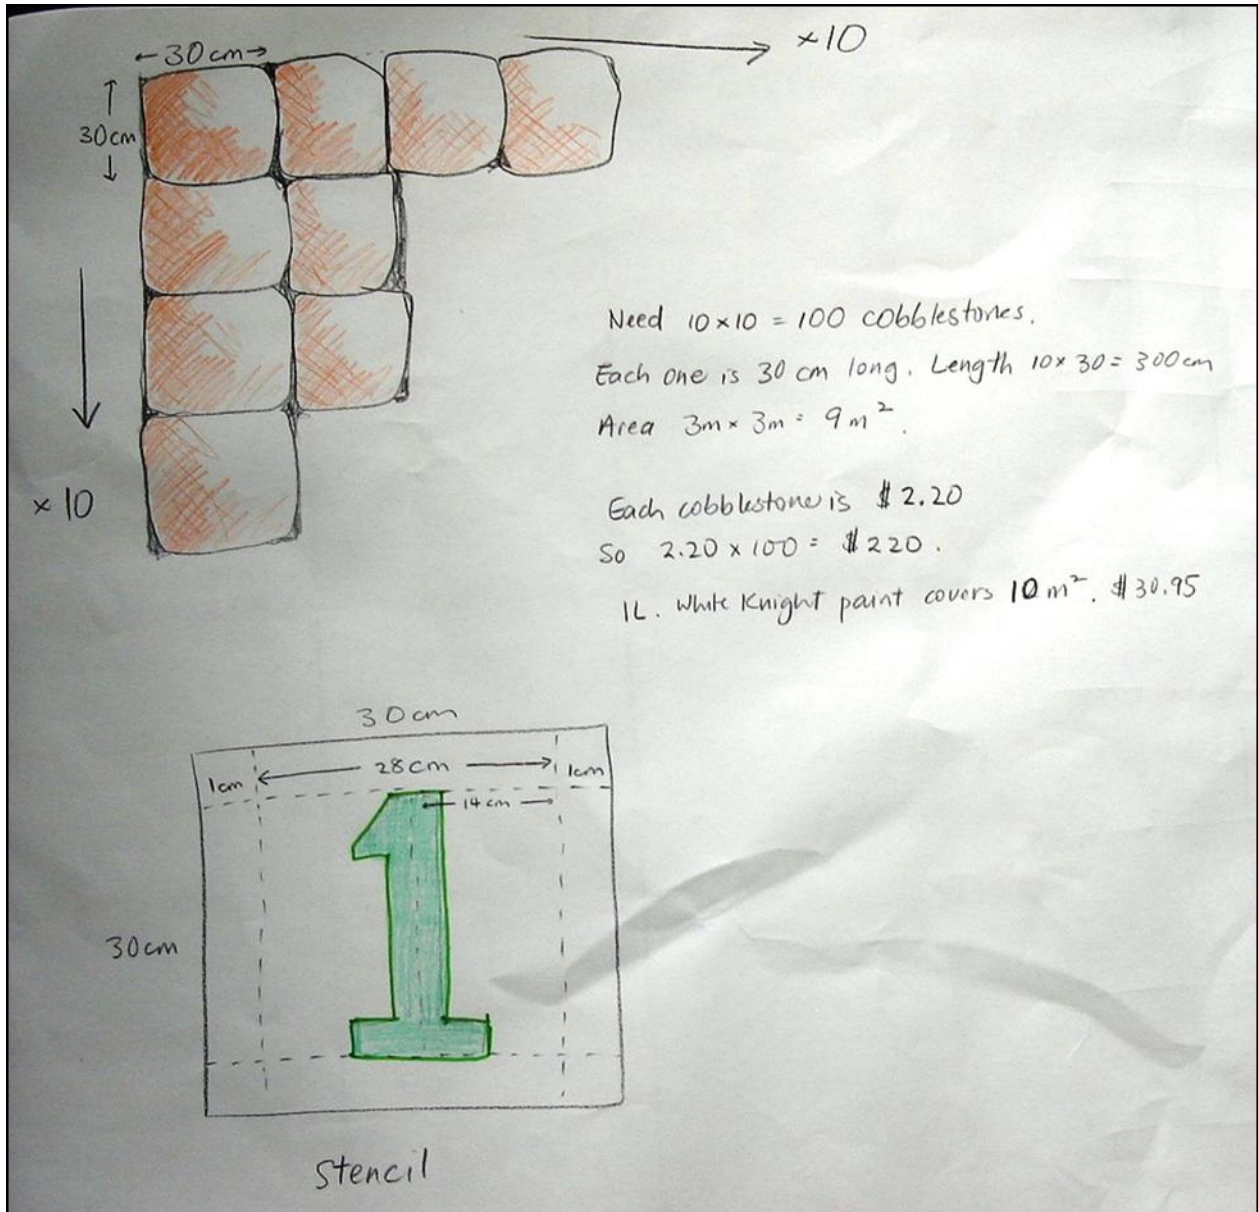 30cm
×10
30cm
×10
Need 10×10 = 100 cobblestones.
Each one is 30 cm long. Length 10×30=300cm
Area 3m×3m= 9m².
Each cobblestone is $2.20
So 2.20×100= $220.
1L. White Knight paint covers 10m². $30.95
30cm
1cm 28cm 1cm
14cm
1
30cm
Stencil